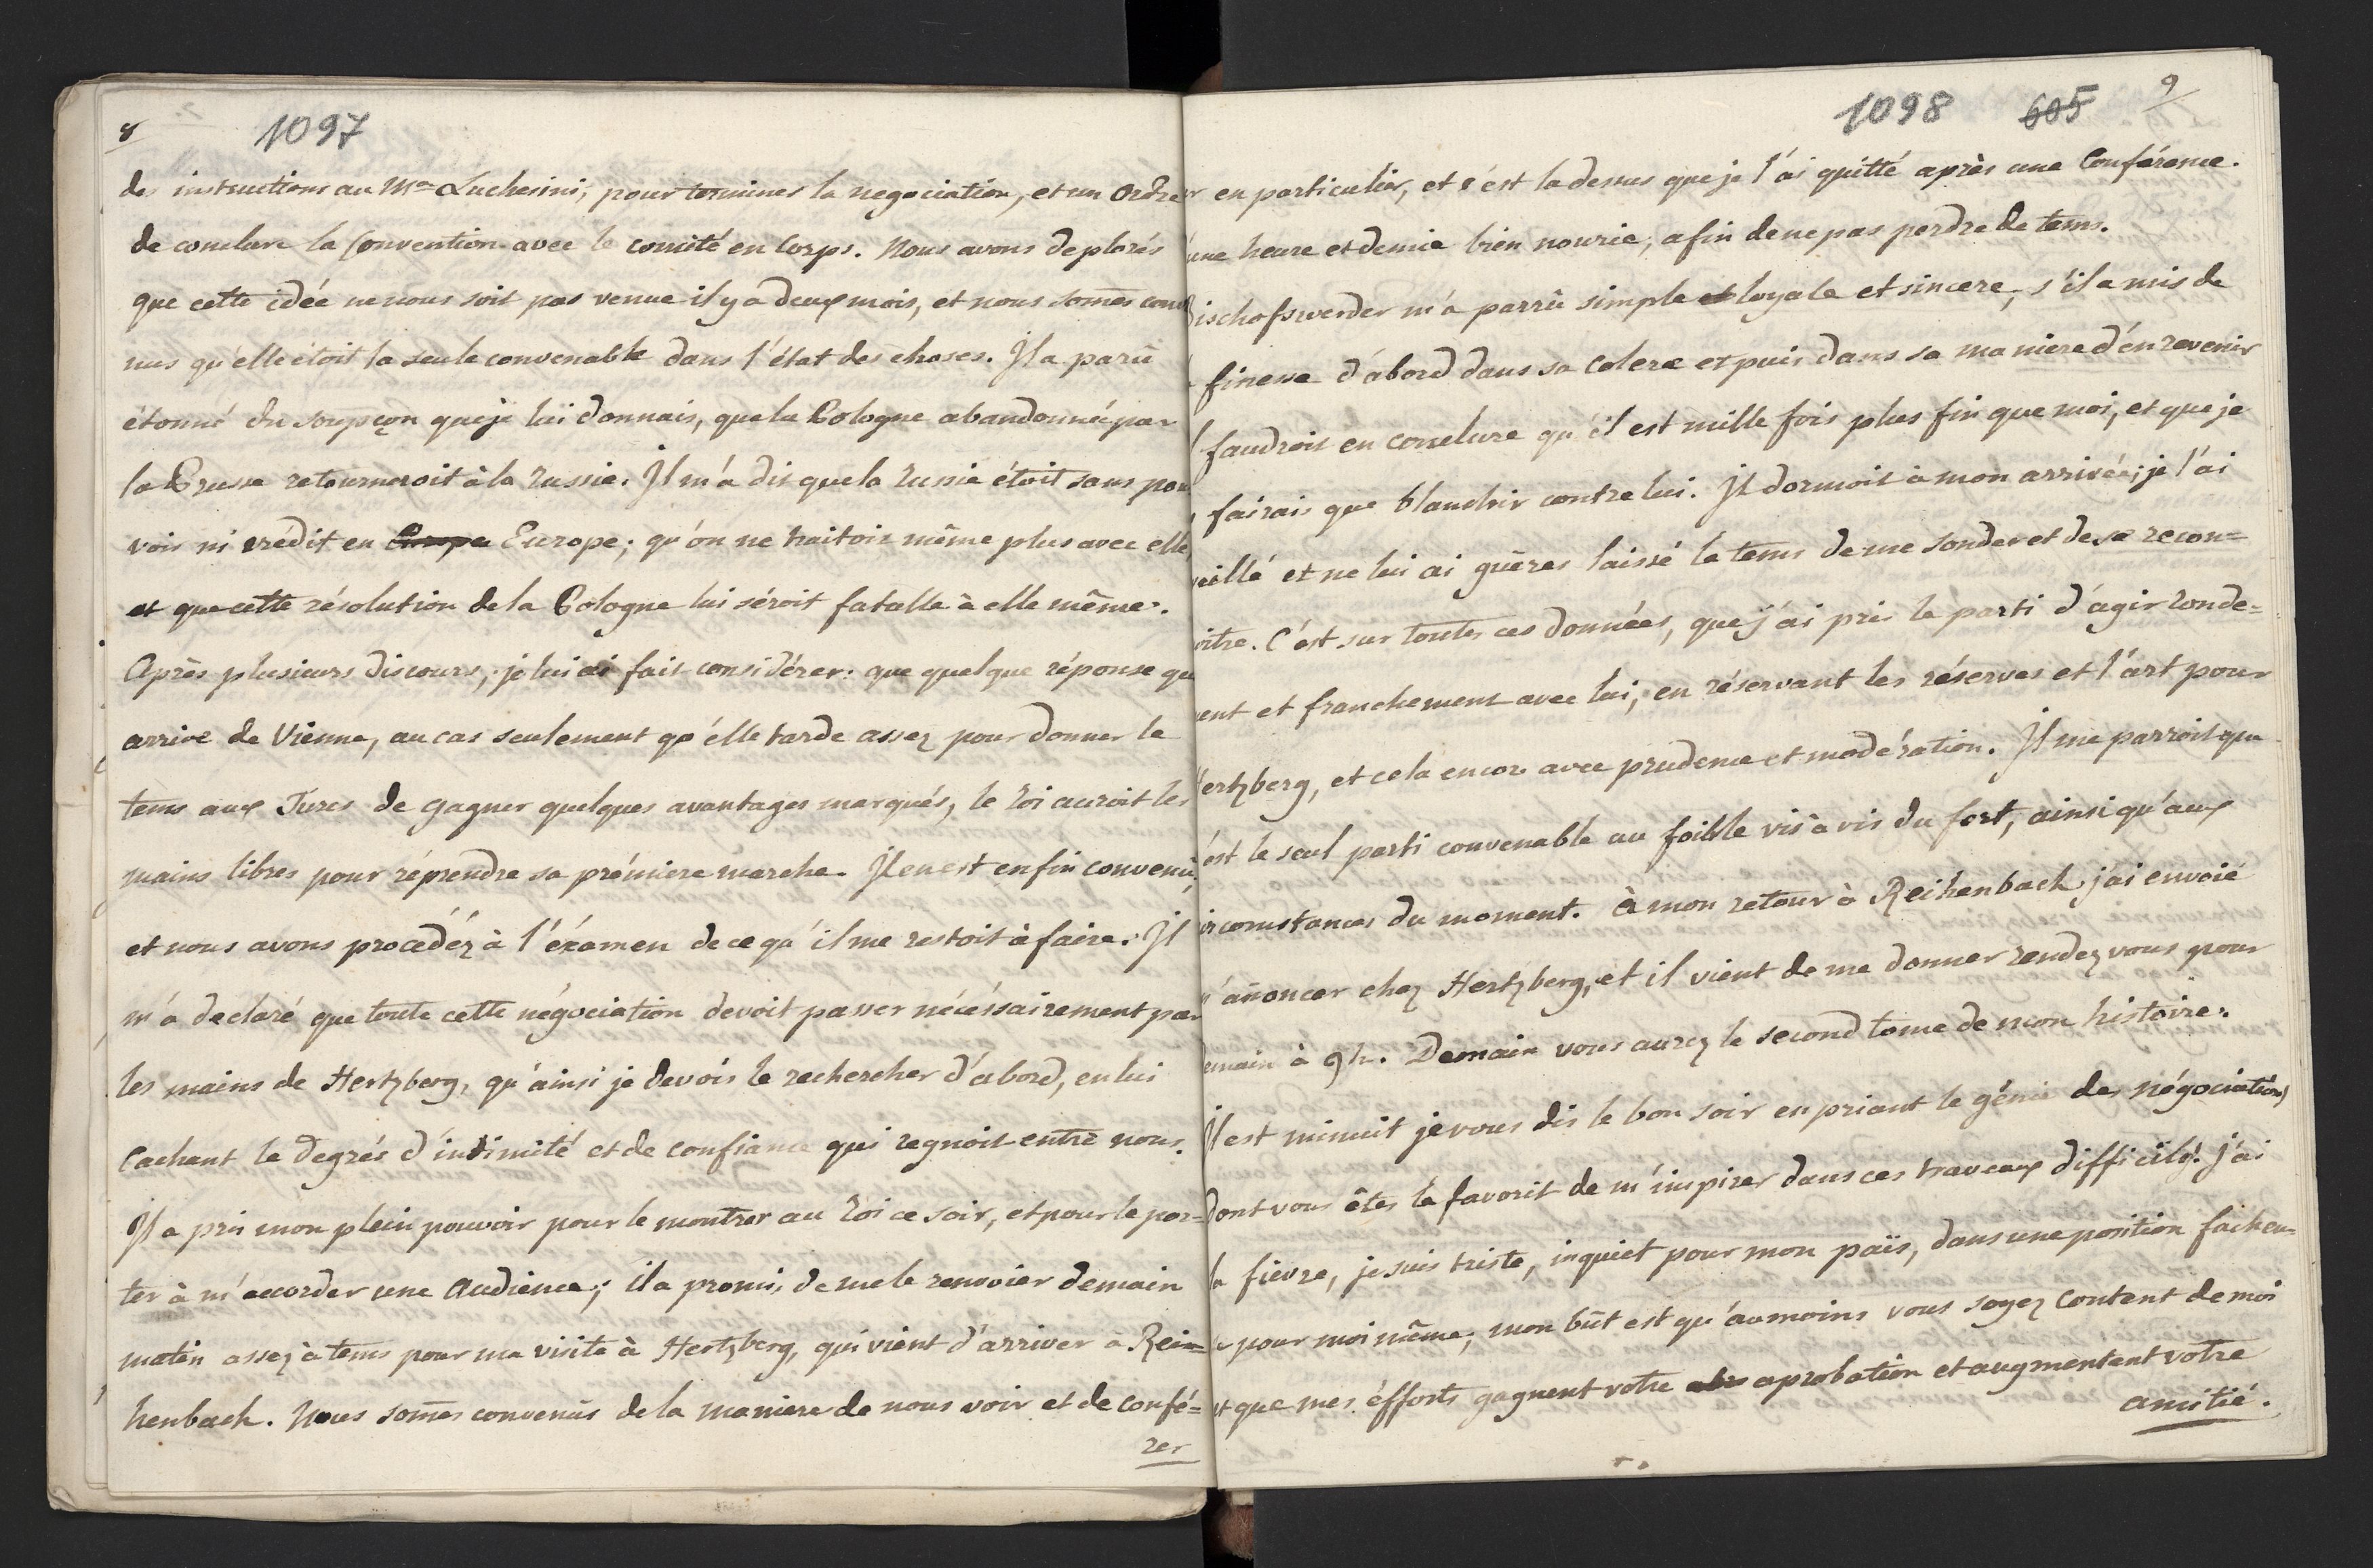 8 1097
des instructions au Mis Luchesini, pour terminer la negociation, et un Ordre
de conclure la Convention avec le comité en Corps. Nous avons deplorés
que cette idée ne nous soit pas venue il y a deux mois, et nous somes conve
nus qu'elle étoit la seule convenable dans l'état des choses. Il a parû
étonné du soupçon que je lui donnais, que la Pologne abandonnée par
la Prusse retourneroit à la Russie. Il m'a dit que la Russie étoit sans pou
voir ni crédit en Europe Europe; qu'on ne traitoit même plus avec elle
et que cette résolution de la Pologne lui séroit fatalle à elle même.
Après plusieurs discours, je lui ai fait considérer: que quelque réponse qu
arrive de Vienne, au cas seulement qu'elle tarde assez pour donner le
tems aux Turcs de gagner quelques avantages marqués, le Roi auroit les
mains libres pour réprendre sa prémiere marche. Il en est enfin convenu,
et nous avons procedéz à l'éxamen de ce qu'il me restoit à faire. Il
m'a declaré que toute cette négociation devoit passer nécéssairement par
les mains de Hertzberg, qu'ainsi je devois le rechercher d'abord, en lui
Cachant le degrés d'intimité et de confiance qui regnoit entre nous.
Il a pris mon plein pouvoir pour le montrer au Roi ce soir, et pour le por=
ter à m'accorder une Audience; il a promis de me le renvoier demain
matin assez à tems pour ma visite à Hertzberg, qui vient d'arriver a Rei=
henbach. Nous somes convenûs de la maniere de nous voir et de confé=
rer
1098 605 9
r en particulier, et c'est la dessus que je l'ai quitté après une Conférence
une heure et demie bien nourie, afin de ne pas perdre de tems.
ischofswerder m'a parrû simple et loyale et sincere, s'il a mis de
finesse d'abord dans sa Colere et puis dans sa maniere d'en revenir
faudroit en conclure qu'il est mille fois plus fin que moi, et que je
fairais que blanchir contre lui. Il dormoit à mon arrivée; je l'ai
veillé et ne lui ai guères laissé le tems de me sonder et de se recon=
oitre. C'est sur toutes ces données, que j'ai pris le parti d'agir ronde=
ent et franchement avec lui, en réservant les réserves et l'art pour
ertzberg, et cela encor avec prudence et modération. Il me parroit que
'est le seul parti convenable au foible vis à vis du fort, ainsi qu'aux
irconstances du moment. à mon retour à Reihenbach j'ai envoié
m'añoncer chez Hertzberg, et il vient de me donner rendez vous pour
emain à 9 h. Demain vous aurez le second tome de mon histoire.
Il est minuit je vous dis le bon soir en priant le génie des négociations
dont vous êtes le favorit de m'inspirer dans ces travaux difficils. j'ai
la fievre, je suis triste, inquiet pour mon païs, dans une position facheu=
e pour moi même; mon bût est qu'aumoins vous soyez Content de moi
et que mes éfforts gagnent votre aprobation et augmentent votre
amitié.